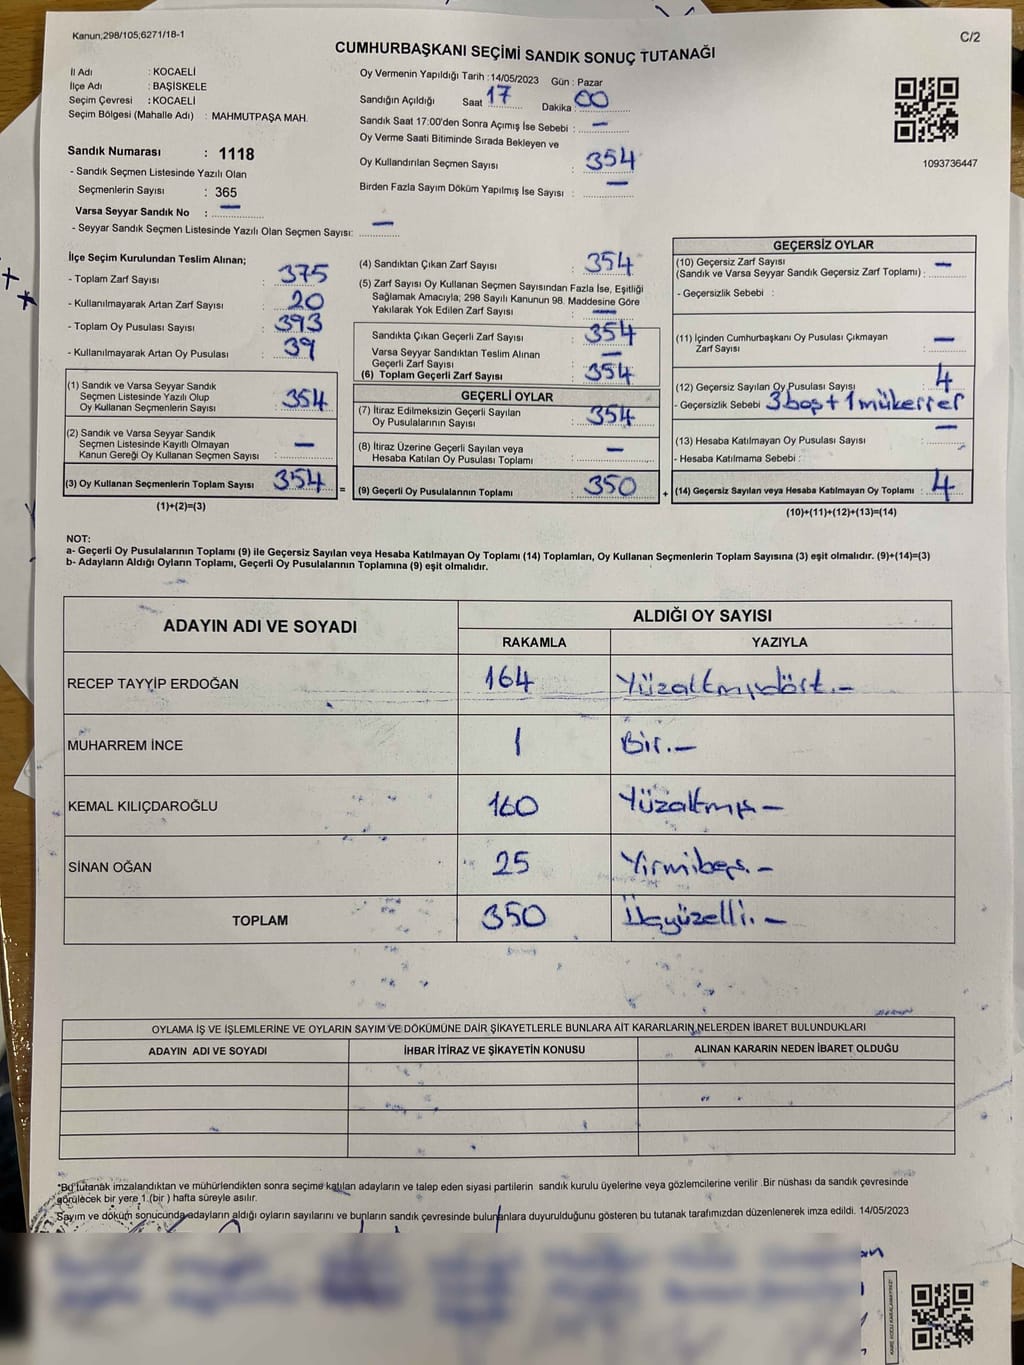 Kanun,298/105,6271/18-1
C/2
CUMHURBAŞKANI SEÇİMİ SANDIK SONUÇ TUTANAĞI
İl Adı : KOCAELİ
İlçe Adı : BAŞİSKELE
Seçim Çevresi : KOCAELİ
Seçim Bölgesi (Mahalle Adı) : MAHMUTPAŞA MAH.
Sandık Numarası : 1118
- Sandık Seçmen Listesinde Yazılı Olan
Seçmenlerin Sayısı : 365
Varsa Seyyar Sandık No : —
- Seyyar Sandık Seçmen Listesinde Yazılı Olan Seçmen Sayısı: —
Oy Vermenin Yapıldığı Tarih : 14/05/2023 Gün : Pazar
Sandığın Açıldığı Saat 17 Dakika 00
Sandık Saat 17:00'den Sonra Açımış İse Sebebi : —
Oy Verme Saati Bitiminde Sırada Bekleyen ve
Oy Kullandırılan Seçmen Sayısı : 354
Birden Fazla Sayım Döküm Yapılmış İse Sayısı : —
1093736447
İlçe Seçim Kurulundan Teslim Alınan;
- Toplam Zarf Sayısı : 375
- Kullanılmayarak Artan Zarf Sayısı : 20
- Toplam Oy Pusulası Sayısı : 393
- Kullanılmayarak Artan Oy Pusulası : 39
(1) Sandık ve Varsa Seyyar Sandık
Seçmen Listesinde Yazılı Olup
Oy Kullanan Seçmenlerin Sayısı : 354
(2) Sandık ve Varsa Seyyar Sandık
Seçmen Listesinde Kayıtlı Olmayan
Kanun Gereği Oy Kullanan Seçmen Sayısı : —
(3) Oy Kullanan Seçmenlerin Toplam Sayısı : 354 =
(1)+(2)=(3)
(4) Sandıktan Çıkan Zarf Sayısı : 354
(5) Zarf Sayısı Oy Kullanan Seçmen Sayısından Fazla İse, Eşitliği
Sağlamak Amacıyla; 298 Sayılı Kanunun 98. Maddesine Göre
Yakılarak Yok Edilen Zarf Sayısı : —
Sandıkta Çıkan Geçerli Zarf Sayısı : 354
Varsa Seyyar Sandıktan Teslim Alınan
Geçerli Zarf Sayısı : —
(6) Toplam Geçerli Zarf Sayısı : 354
GEÇERLİ OYLAR
(7) İtiraz Edilmeksizin Geçerli Sayılan
Oy Pusulalarının Sayısı : 354
(8) İtiraz Üzerine Geçerli Sayılan veya
Hesaba Katılan Oy Pusulası Toplamı : —
(9) Geçerli Oy Pusulalarının Toplamı : 350 +
GEÇERSİZ OYLAR
(10) Geçersiz Zarf Sayısı
(Sandık ve Varsa Seyyar Sandık Geçersiz Zarf Toplamı) : —
- Geçersizlik Sebebi :
(11) İçinden Cumhurbaşkanı Oy Pusulası Çıkmayan
Zarf Sayısı : —
(12) Geçersiz Sayılan Oy Pusulası Sayısı : 4
- Geçersizlik Sebebi : 3 boş + 1 mükerrer
(13) Hesaba Katılmayan Oy Pusulası Sayısı : —
- Hesaba Katılmama Sebebi :
(14) Geçersiz Sayılan veya Hesaba Katılmayan Oy Toplamı : 4
(10)+(11)+(12)+(13)=(14)
NOT:
a- Geçerli Oy Pusulalarının Toplamı (9) ile Geçersiz Sayılan veya Hesaba Katılmayan Oy Toplamı (14) Toplamları, Oy Kullanan Seçmenlerin Toplam Sayısına (3) eşit olmalıdır. (9)+(14)=(3)
b- Adayların Aldığı Oyların Toplamı, Geçerli Oy Pusulalarının Toplamına (9) eşit olmalıdır.
ADAYIN ADI VE SOYADI
ALDIĞI OY SAYISI
RAKAMLA YAZIYLA
RECEP TAYYİP ERDOĞAN 164 Yüzaltmışdört.—
MUHARREM İNCE 1 Bir.—
KEMAL KILIÇDAROĞLU 160 Yüzaltmış —
SİNAN OĞAN 25 Yirmibeş.—
TOPLAM 350 Üçyüzelli.—
OYLAMA İŞ VE İŞLEMLERİNE VE OYLARIN SAYIM VE DÖKÜMÜNE DAİR ŞİKAYETLERLE BUNLARA AİT KARARLARIN NELERDEN İBARET BULUNDUKLARI
ADAYIN ADI VE SOYADI İHBAR İTİRAZ VE ŞİKAYETİN KONUSU ALINAN KARARIN NEDEN İBARET OLDUĞU
*Bu tutanak imzalandıktan ve mühürlendikten sonra seçime katılan adayların ve talep eden siyasi partilerin sandık kurulu üyelerine veya gözlemcilerine verilir .Bir nüshası da sandık çevresinde
görülecek bir yere 1 (bir ) hafta süreyle asılır.
Sayım ve döküm sonucunda adayların aldığı oyların sayılarını ve bunların sandık çevresinde bulunanlara duyurulduğunu gösteren bu tutanak tarafımızdan düzenlenerek imza edildi. 14/05/2023